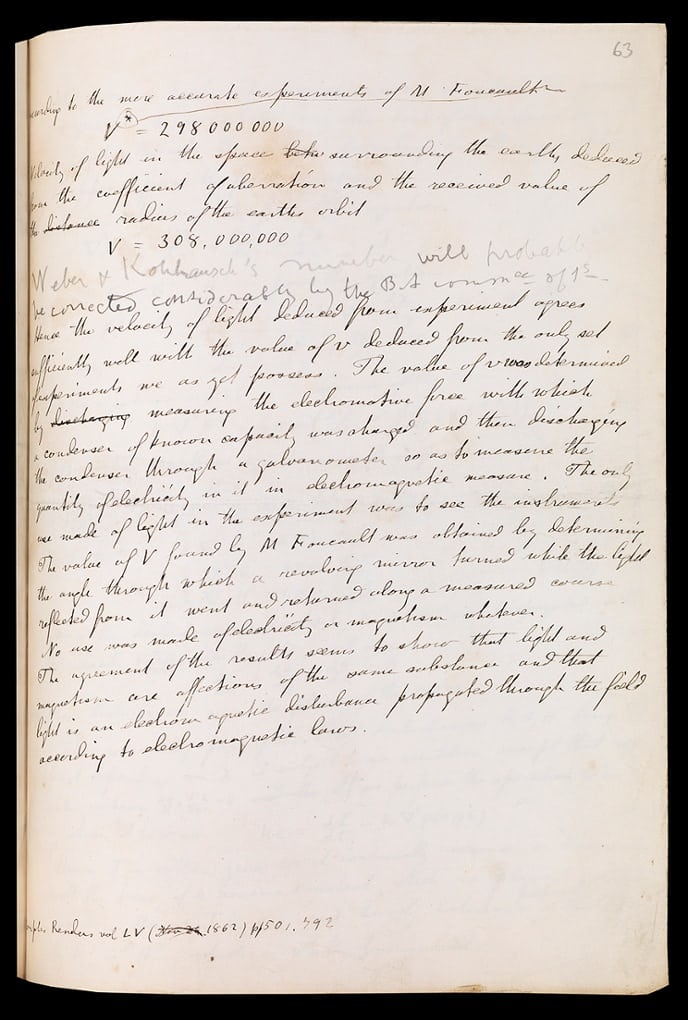 63
according to the more accurate experiments of M Foucault
V * = 298000000
Velocity of light in the space betw surrounding the earth deduced
from the coefficient of aberration and the received value of
the distance radius of the earths orbit
V = 308,000,000
Weber & Kohlrausch's number will probably
be corrected considerably by the BA commee of
Hence the velocity of light deduced from experiment agrees
sufficiently well with the value of v deduced from the only set
of experiments we as yet possess. The value of v was determined
by discharging measuring the electromotive force with which
a condenser of known capacity was charged and then discharging
the condenser through a galvanometer so as to measure the
quantity of electricity in it in electromagnetic measure. The only
use made of light in the experiment was to see the instruments
The value of V found by M Foucault was obtained by determining
the angle through which a revolving mirror turned while the light
reflected from it went and returned along a measured course
No use was made of electricity or magnetism whatever.
The agreement of the results seems to show that light and
magnetism are affections of the same substance and that
light is an electromagnetic disturbance propagated through the field
according to electromagnetic laws.
Comptes Rendus vol LV (1862) pp 501, 792